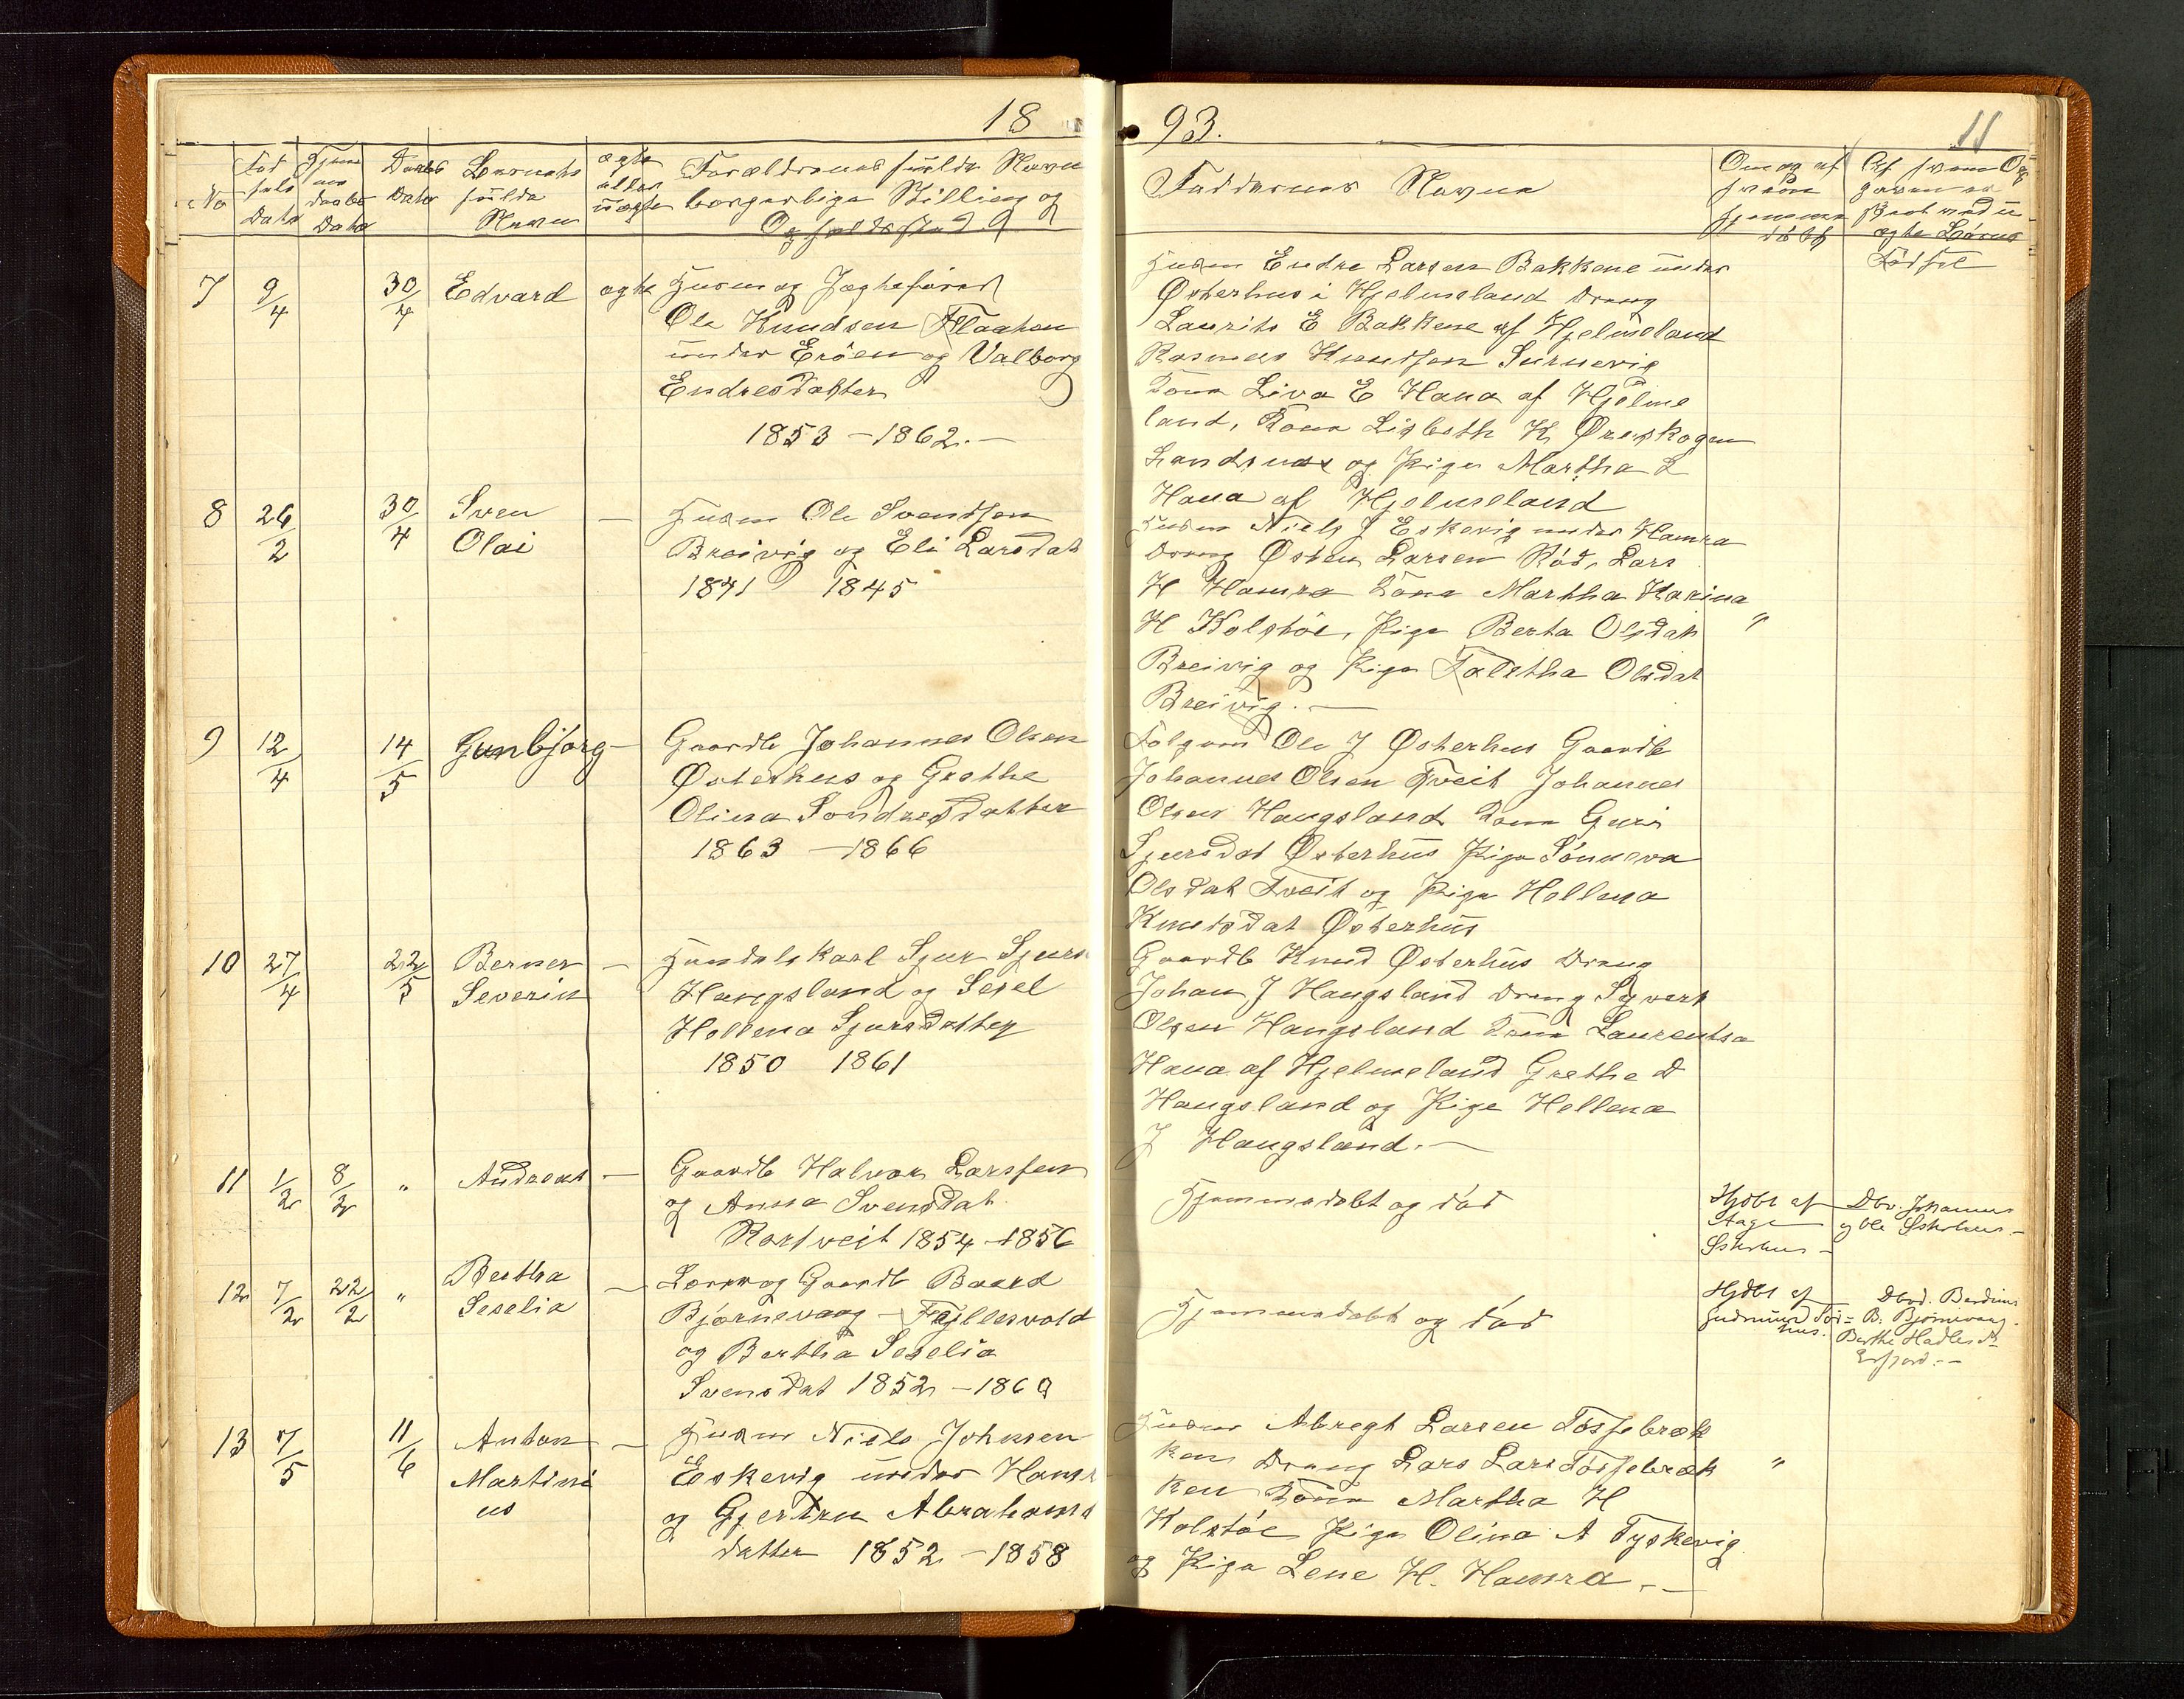 18
93.
11
No
Fød
sels
Dato
Hjem
me
daabs
Dato
Daabs
Dato
Barnets
fulde
Navn
ægte
eller
uægte
Forældrenes fulde Navn
borgerlige Stilling og
Opholdssted
Faddernes Navne
Om og af
hvem
hjemme
døbt
Af hvem Op
gaven er
skeet ved u
ægte Børns
Fødsel
7 9/4 30/4 Edvard ægte Husm og
Ole Knudsen Flaaten
under Erøen og Valborg
Endresdatter
1853 - 1862. -
Husm Endre Larsen Bakkene under
Østerhus i Hjelmeland Dreng
Laurits E Bakkene af Hjelmeland
Rasmus Knudsen Survevig
Kone Liva E Hana af Hjelme
land, Kone Lisbeth K Øreskogen
Sandsnes og Pige Martha L
Hana af Hjelmeland
8 26/2 30/4 Sven — Husm Ole Svendsen
Olai Breivig og Eli Larsdat
1841 1845
Husm Niels J Eskevig under Hamra
Dreng Østen Larsen Rød, Lars
H Hamra Kone Martha Karina
H Kolstøe, Pige Berta Olsdat "
Breivig og Pige Taletha Olsdat
Breivig. —
9 12/4 14/5 Gunbjørg — Gaardb Johannes Olsen
Østerhus og Grethe
Olina Sondresdatter
1863 - 1866
Følgem Ole J Østerhus Gaardb
Johannes Olsen Tveit Johannes
Olsen Haugsland Kone Guri
Sjursdat Østerhus Pige Sønneva
Olsdat Tveit og Pige Hellena
Knutsdat Østerhus
10 27/4 22/5 Berner — Handelskarl Sjur Sjurs
Severin Haugsland og Sesel
Hellena Sjursdatter
1850 1861
Gaardb Knud Østerhus Dreng
Johan J Haugsland Dreng Syvert
Olsen Haugsland Kone Laurentsa
Hana af Hjelmeland Grethe D
Haugsland og Pige Hellena
J Haugsland. —
11 1/2 8/2 " Andreas — Gaardb Halvor Larssen
og Anna Svensdat
Rortveit 1854 - 1856
Hjemmedøbt og død
Hjdbt af
Aage
Østerhus -
Dbv. Johannes
og Ole Østerhus. -
12 7/2 22/2 " Bertha — Lærer og Gaardb Baard
Seselia Bjørnevaag - Fjellesvold
og Bertha Seselia
Svensdat 1852 - 1860
Hjemmedøbt og død
Hjdbt af
Gudmund Tøs=
hus.
Dbvd. Bardinus
B. Bjørnevaag.
Berthe Hadlesdt
Erfjord. -
13 7/5 11/6 Anton — Husm Niels Johnsen
Martini Eskevig under Hamr
us og Gjertru Abrahams
datter 1852 - 1858
Husm Abregt Larsen Tøssebræk
ken Dreng Lars Lars Tøssebræk "
ken Kone Martha H
Kolstøe Pige Olina A Tyskevig
og Pige Lene H. Hamra. —